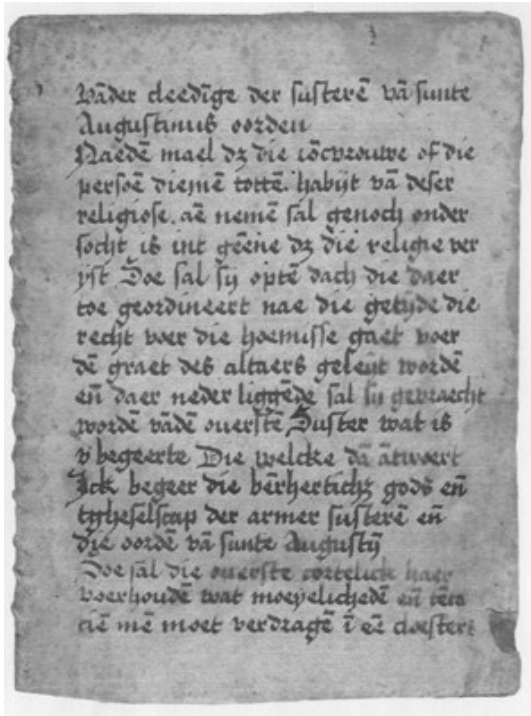 Vãder cleedĩge der susterẽ vã sunte
Augustinus oorden
Naedẽ mael dz die iõcvrouwe of die
persoẽ diemẽ tottẽ habijt vã deser
religiose. aẽ nemẽ sal genoch onder
socht is int gẽene dz die religie ver
yst Doe sal sij optẽ dach die daer
toe geordineert nae die getijde die
recht voer die hoemisse gaet voer
dẽ graet des altaers geleijt wordẽ
eñ daer neder liggẽde sal sij gevraecht
wordẽ vãdẽ ouerstẽ Suster wat is
v begeerte Die welcke dã ãtwoert
Ick begeer die bẽrherticht gods eñ
tgheselscap der armer susterẽ eñ
die oordẽ vã sunte Augustij
Doe sal die ouerste cortelick haer
voerhoudẽ wat moeyelichedẽ eñ tẽta
ciẽ mẽ moet verdragẽ ĩ eẽ cloester